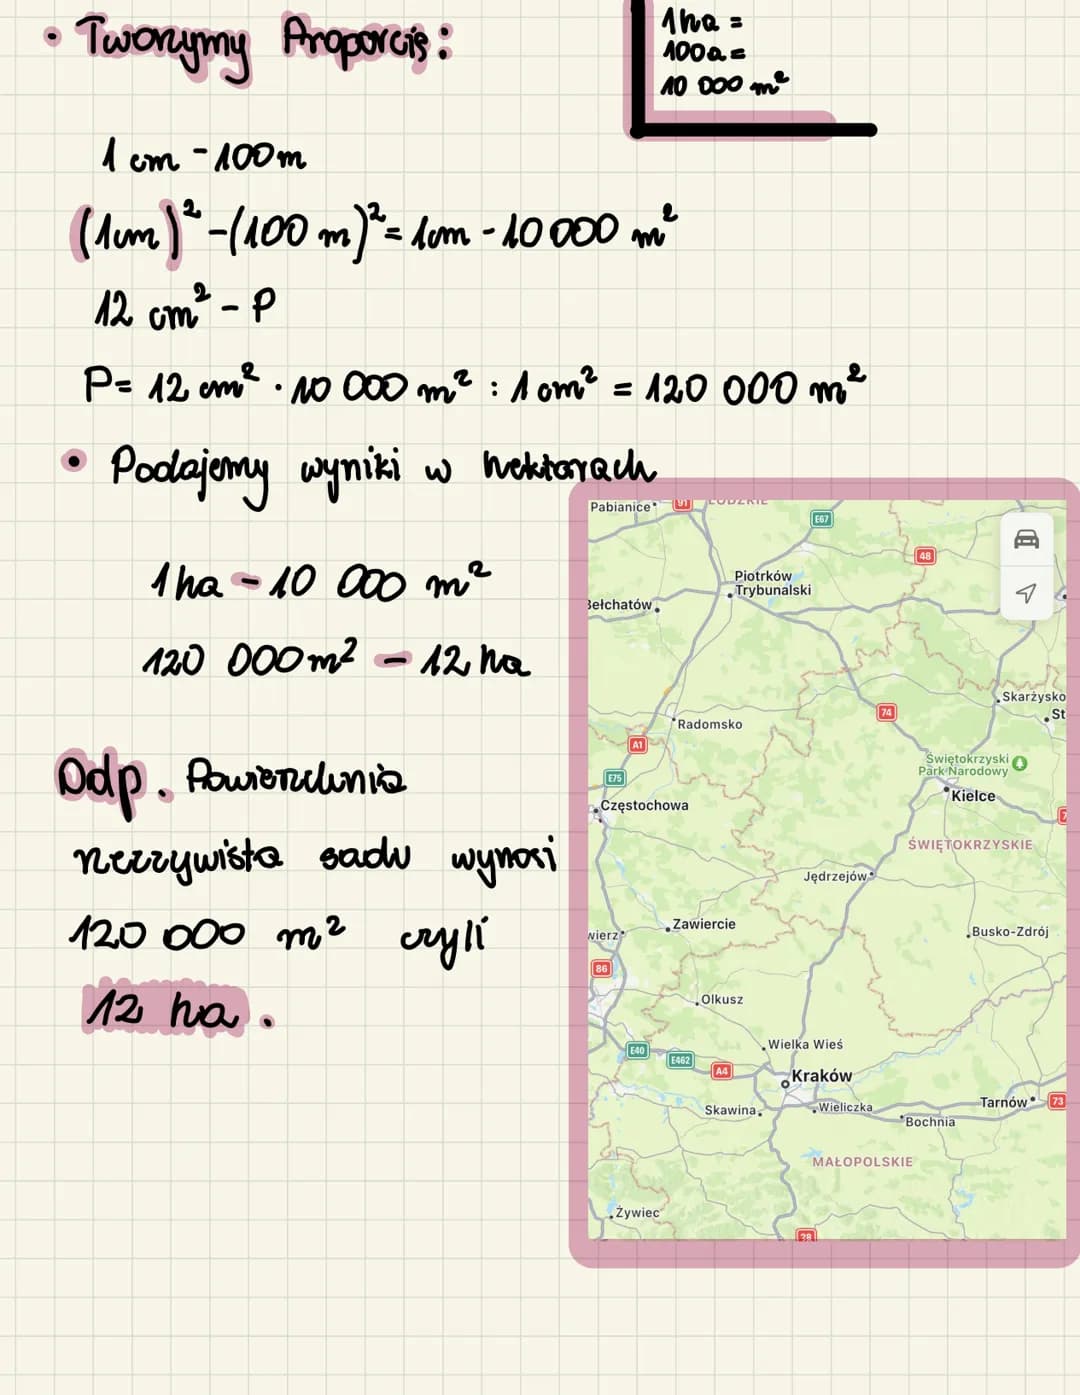 • Tworzymy Proporcję:
1 ha =
100a =
10 000 m²
1 cm - 100m
(1cm)² - (100 m)² = 1cm - 10 000 m²
12 cm² - P
P = 12 cm² · 10 000 m² : 1 cm² = 120 000 m²
• Podajemy wyniki w hektarach
1 ha - 10 000 m²
120 000 m² - 12 ha
Odp. Powierzchnia
rzeczywista sadu wynosi
120 000 m² czyli
12 ha.
Pabianice
91
ŁÓDZKIE
E67
48
Piotrków
Trybunalski
Bełchatów
Skarżysko
St
74
Radomsko
A1
Świętokrzyski
Park Narodowy
E75
Kielce
Częstochowa
7
ŚWIĘTOKRZYSKIE
Jędrzejów
Zawiercie
wierz
Busko-Zdrój
86
Olkusz
Wielka Wieś
E40
E462
A4
Kraków
Tarnów
73
Skawina
Wieliczka
Bochnia
MAŁOPOLSKIE
Żywiec
28